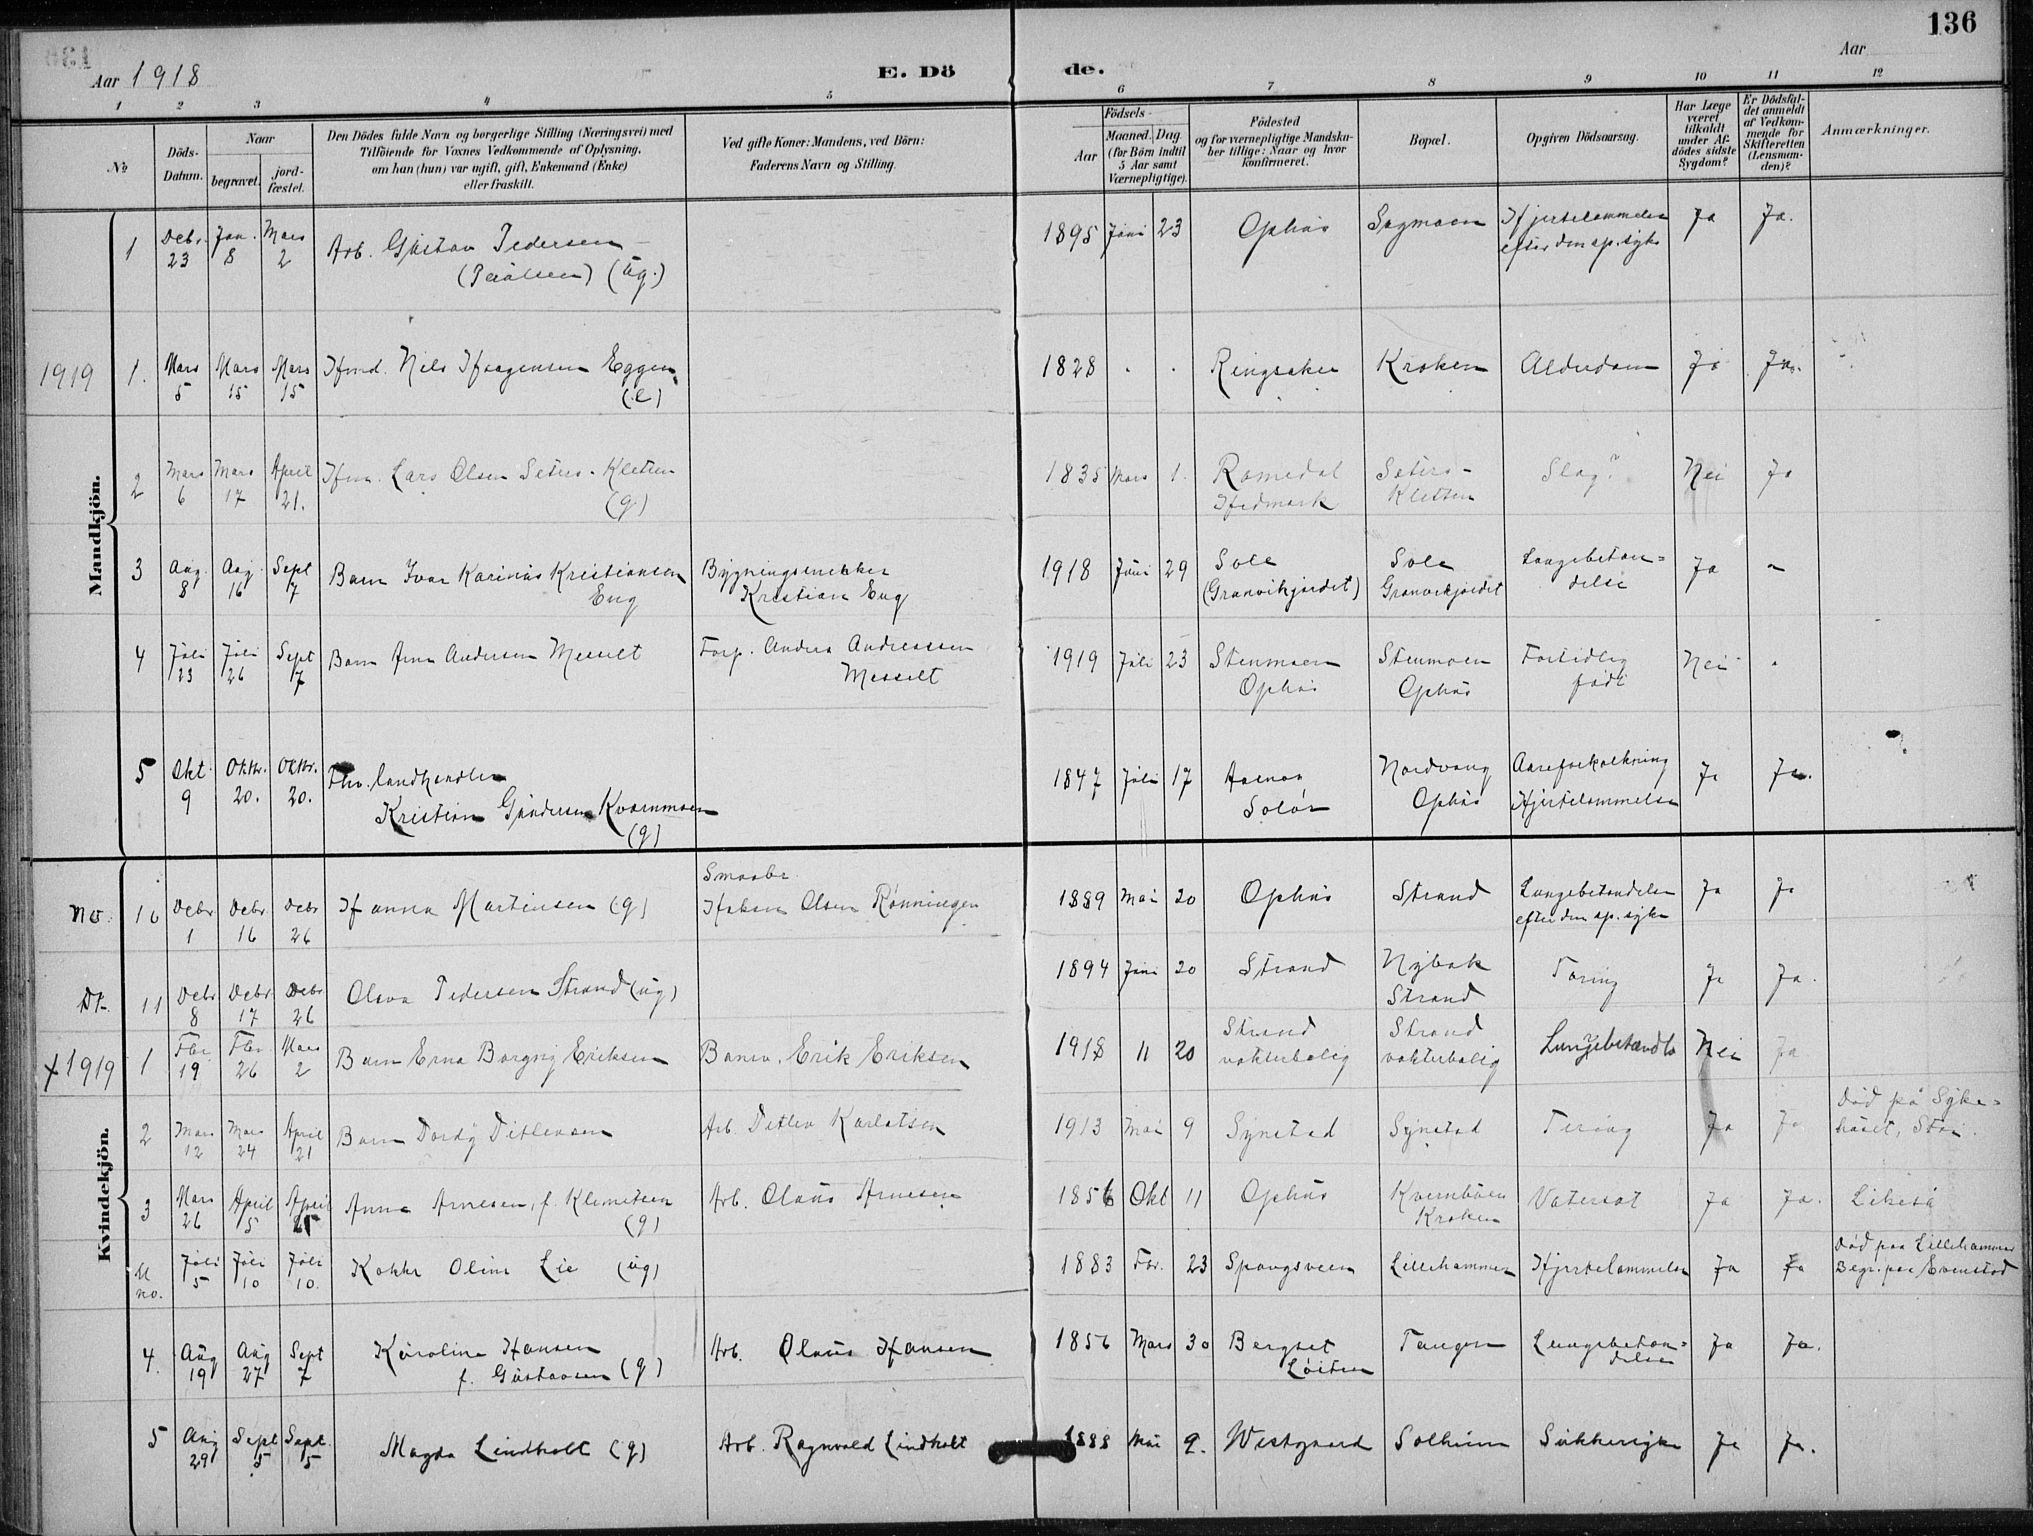 136
Aar 1918
E. Dö de.
Aar
1 2 3 4 5 6 7 8 9 10 11 12
No
Döds-Datum.
Naar
begravet.
jord-fæstet.
Den Dödes fulde Navn og borgerlige Stilling (Næringsvei) med
Tilföiende for Voxnes Vedkommende af Oplysning,
om han (hun) var ugift, gift, Enkemand (Enke)
eller fraskilt.
Ved gifte Koner: Mandens, ved Börn:
Faderens Navn og Stilling.
Födsels-
Aar
Maaned. Dag.
(for Börn indtil
5 Aar samt
Værnepligtige).
Födested
og for værnepligtige Mandska-
ber tillige: Naar og hvor
konfirmeret.
Bopæl.
Opgiven Dödsaarsag.
Har Læge
været
tilkaldt
under Af-
dödes sidste
Sygdom?
Er Dödsfal-
det anmeldt
af Vedkom-
mende for
Skifteretten
(Lensman-
den)?
Anmærkninger.
Mandkjön.
1 Debr. 23 Jan. 8 Mars 2 Arb. Gustav Pedersen (ug.) 1895 Juni 23 Ophus Sagmoen Hjertelammelse efter den sp. syke Ja Ja.
1919 1. Mars 5 Mars 15 Mars 15 Hmd. Nils Haagensen Eggen (e) 1828 . . Ringsaker Kroken Alderdom Ja Ja.
2 Mars 6 Mars 17 April 21. Hm. Lars Olsen Seters-Kletten (g) 1835 Mars 1. Romedal Hedmark Seters-Kletten Slag? Nei Ja
3 Aug. 8 Aug 16 Sept 7 Barn Ivar Karinus Kristiansen Eng Bygningssnekker Kristian Eng 1918 Juni 29 Sole (Granvikjordet) Sole Granvikjordet Lungebetæn=delse Ja -
4 Juli 23 Juli 26 Sept 7 Barn Arne Andersen Messelt Forp. Anders Andreassen Messelt 1919 Juli 23 Stenmoen Ophus Stenmoen Ophus Fortidlig født Nei -
5 Okt 9 Oktbr. 20. Oktbr. 20. Fhv. landhandler Kristian Gundersen Kværnmoen (g) 1847 Juli 17 Aasnes Solør Nordvang Ophus Aareforkalkning Hjertelammelse Ja Ja.
Kvindekjön.
No. 10 Debr 1 Debr 16 Debr 26 Hanna Martinsen (g) Smaabr. Haken Olsen Rønningen 1889 Mai 20 Ophus Strand Lungebetændelse efter den sp. syke Ja Ja
Do. 11 Debr 8 Debr 17 Debr 26 Olava Pedersen Strand (ug) 1894 Juni 20 Strand Nybak Strand Tæring Ja Ja.
+1919 1 Fbr. 19 Fbr. 26 Mars 2 Barn Erna Borgny Eriksen Banev. Erik Eriksen 1918 11 20 Strand vokterbolig Strand vokterbolig Lungebetændels Nei Ja
2 Mars 12 Mars 24 April 21 Barn Dordy Ditlevsen Arb. Detlev Karlotsen 1913 Mai 9 Synstad Synstad Tæring Ja Ja Død på Syke=huset, Stai.
3 Mars 26 April 5 April Anna Arnesen, f. Klemetsen (g) Arb. Olaus Arnesen 1856 Okt 11 Ophus Kvernbuen Kroken Vatersot Ja Ja. Likeså
U no. Juli 5 Juli 10 Juli 10. Kokke Oline Lie (ug) 1883 Fbr. 23 Spangsveen Lillehammer Hjertelammelse Ja Ja Død paa Lillehammer Begr. paa Evenstad
4. Aug 19 Aug 27 Sept 7 Karoline Hansen f. Gustavsen (g) Arb. Olaus Hansen 1856 Mars 30 Bergset Løiten Tangen Lungebetæn=delse Ja Ja.
5 Aug 29 Sept 5 Sept. 5 Magda Lindholt (g) Arb. Ragnvald Lindholt 1888 Mai 9. Westgaard Solheim Sukkersyke Ja Ja.